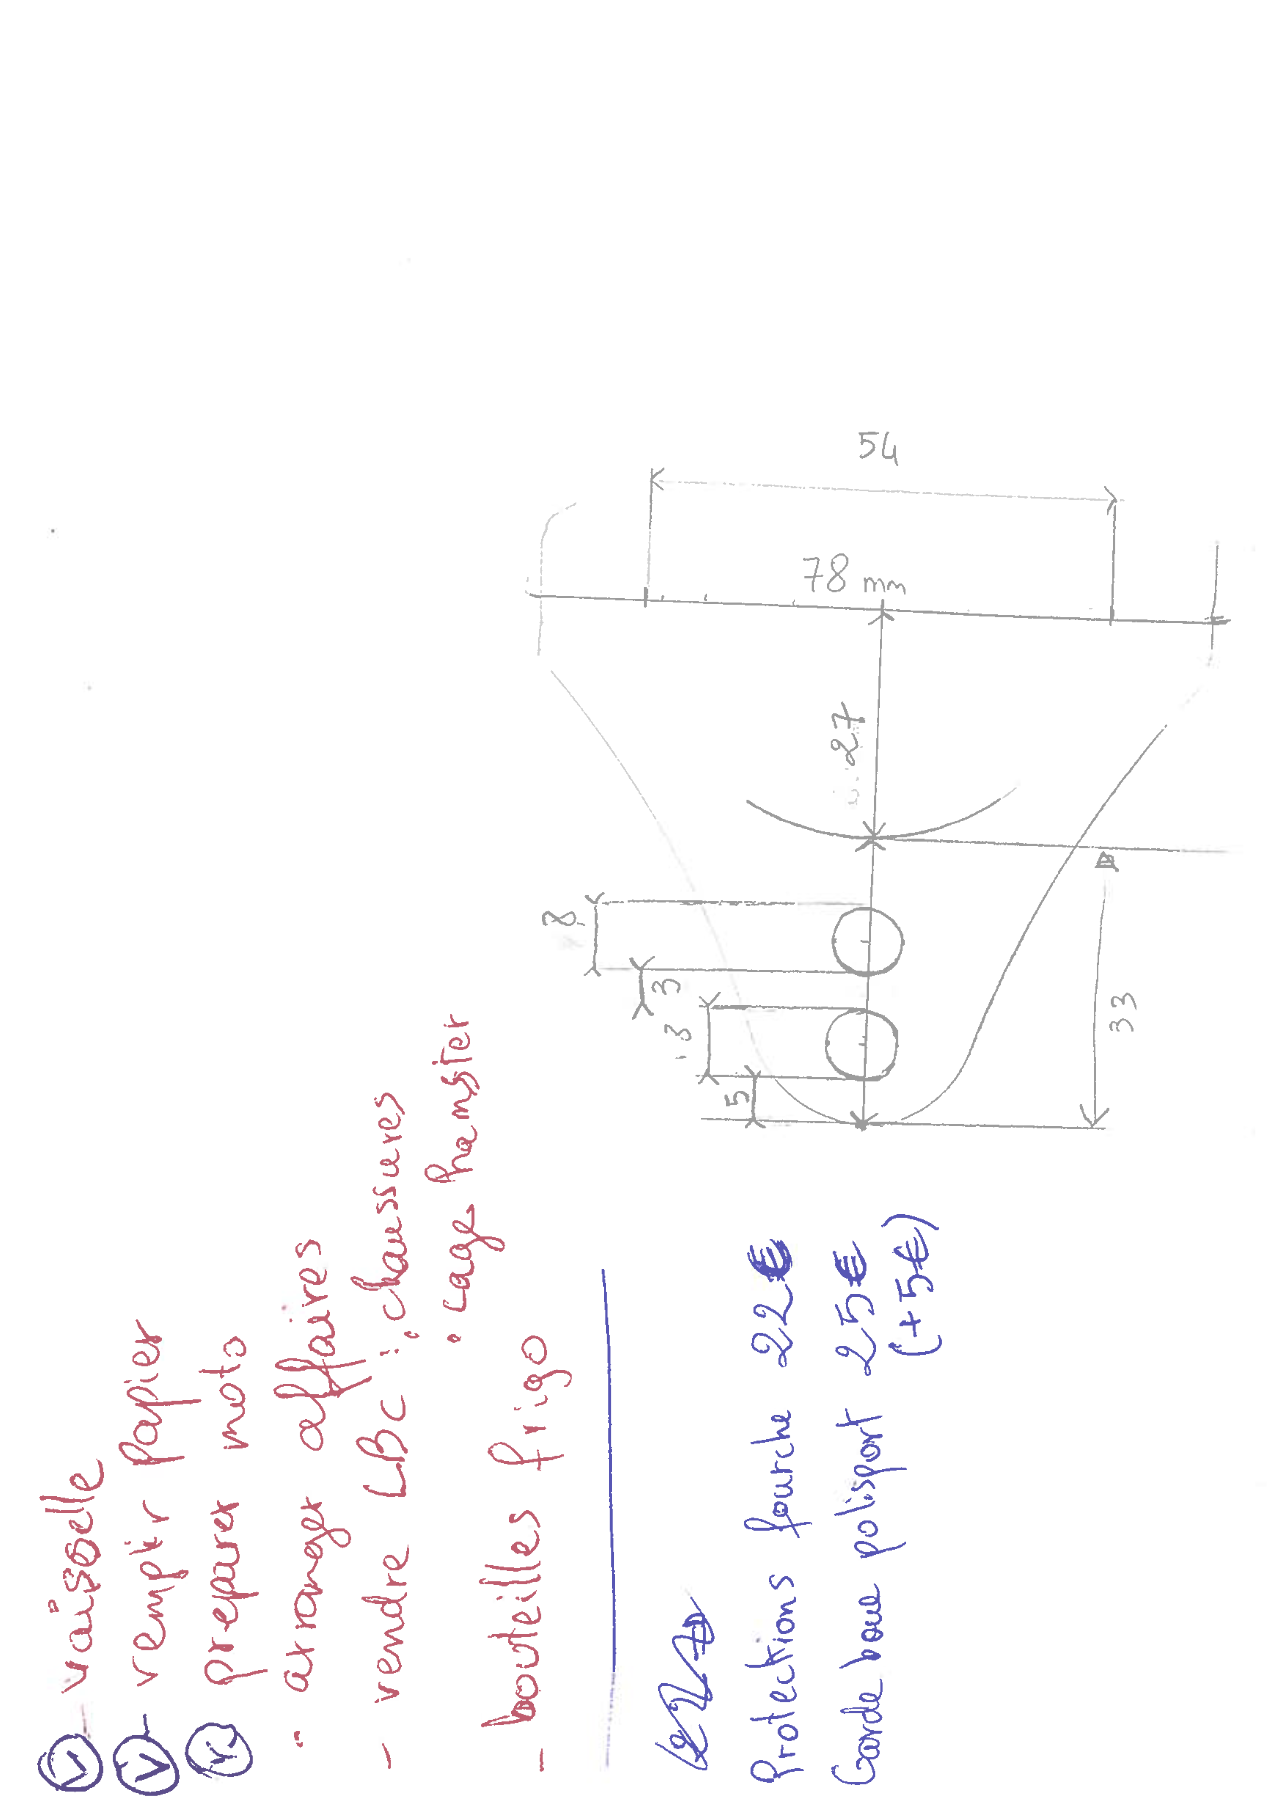 - vaisselle
- remplir papier
preparer moto
- arranger affaires
- vendre LBC : . chaussures
. cage hamster
- bouteilles frigo
Protections fourche 22€
Garde boue polisport 25€
(+5€)
54
78 mm
27
8
3
8
5
33